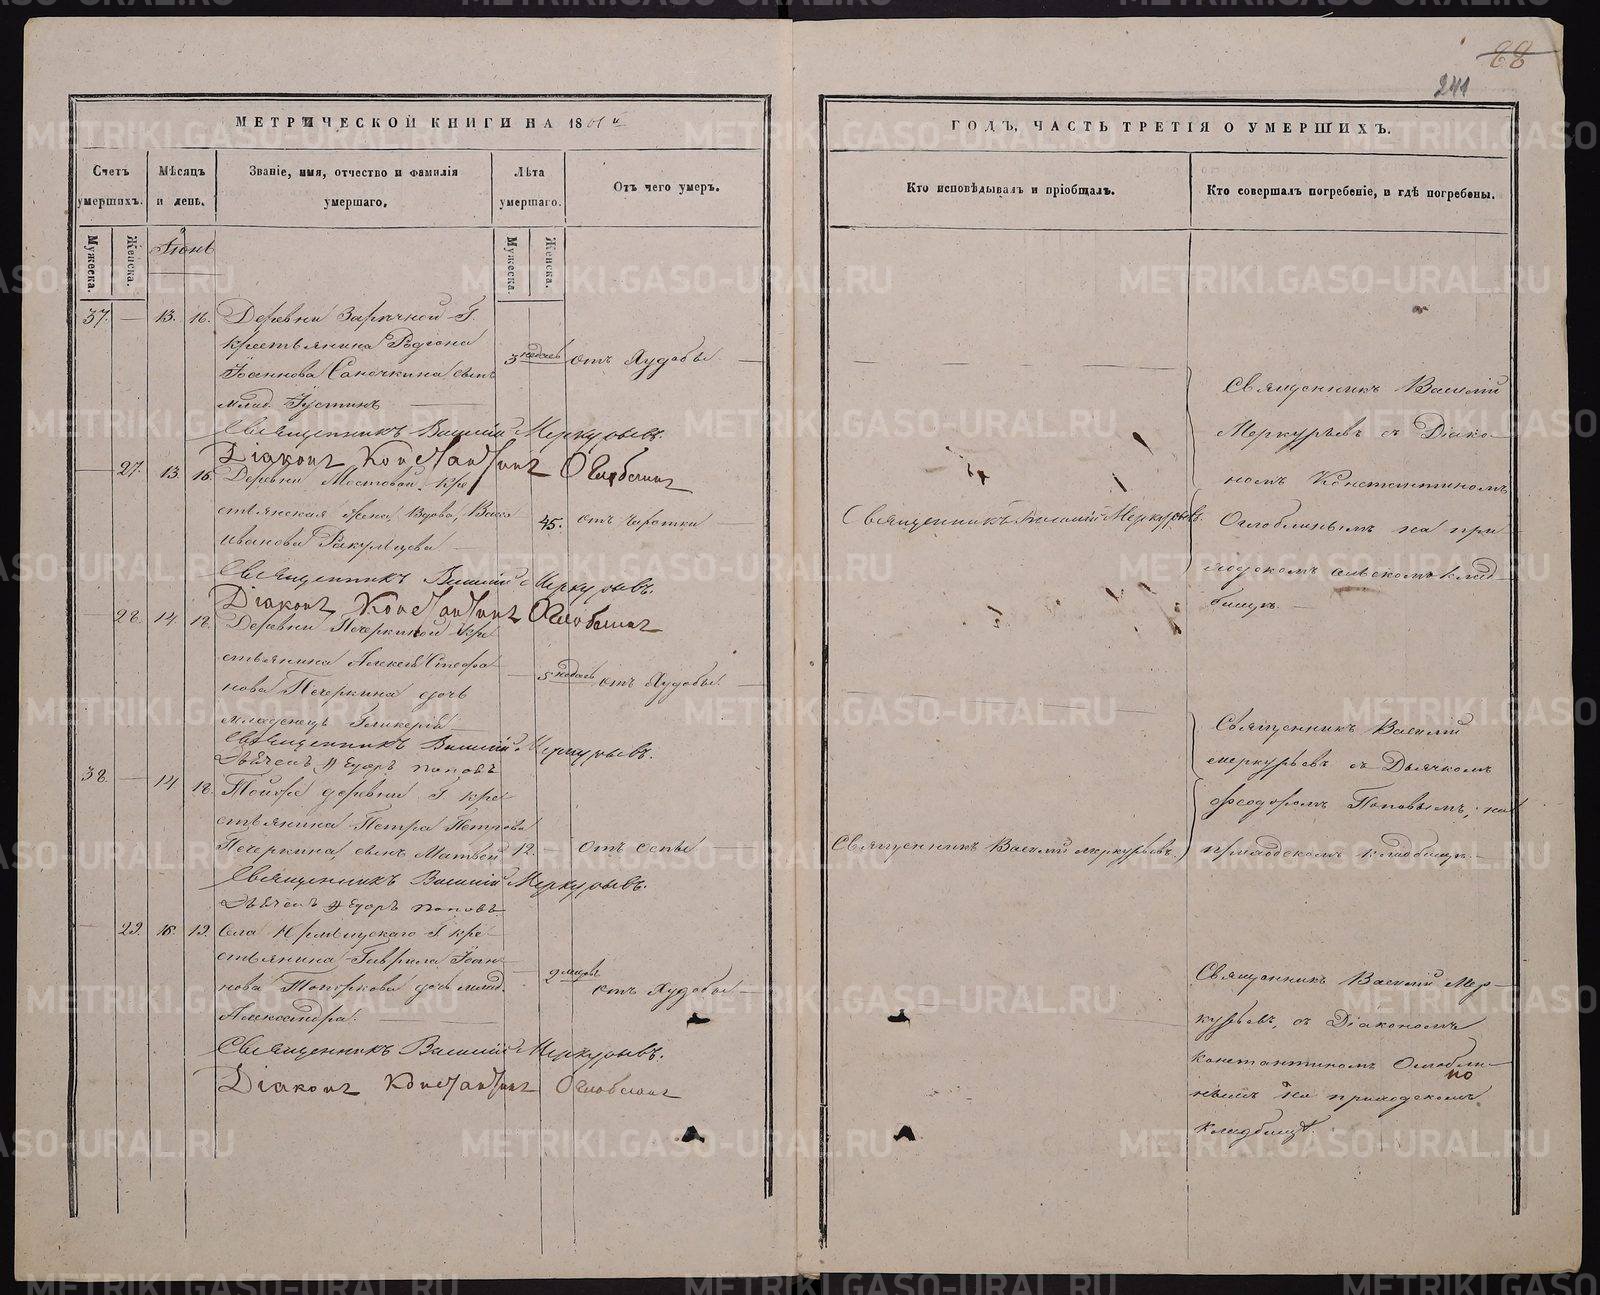 88
241
МЕТРИЧЕСКОЙ КНИГИ НА 1861 й
ГОДЪ, ЧАСТЬ ТРЕТІЯ О УМЕРШИХЪ.
Счетъ умершихъ.
Мѣсяцъ и день.
Званіе, имя, отчество и фамилія умершаго.
Лѣта умершаго.
Отъ чего умеръ.
Кто исповѣдывалъ и пріобщалъ.
Кто совершалъ погребеніе, и гдѣ погребены.
Мужеска.
Женска.
Іюнь
Мужеска.
Женска.
37. — 13. 16. Деревни Заречной Г.
крестьянина Родіона
Іоаннова Саночкина сынъ
млад. Іустинъ
3 недѣль отъ Худобы.
Священникъ Василій Меркурьевъ.
Діаконъ Константинъ Оглоблинъ
— 27. 13. 16. Деревни Мостовой кре
стьянская жена, Вдова, Васса
Иванова Ракульцева
45. отъ Чахотки
Священникъ Василій Меркурьевъ.
Священникъ Василій Меркурьевъ.
Діаконъ Константинъ Оглоблинъ
Священникъ Василій
Меркурьевъ съ Діако-
номъ Константиномъ
Оглоблинымъ на при
ходскомъ сельскомъ клад-
бищѣ.
28. 14. 18. Деревни Печеркиной кре
стьянина Алексѣя Стефа
нова Печеркина дочь
младенецъ Гликерія
5 недѣль отъ Худобы.
Священникъ Василій Меркурьевъ.
Дьячекъ Ѳедоръ Поповъ
38. — 14 18. Тойже деревни Г. кре
стьянина Петра Петрова
Печеркина, сынъ Матвей
12. — отъ оспы
Священникъ Василій Меркурьевъ.
Священникъ Василій Меркурьевъ.
Дьячекъ Ѳедоръ Поповъ
Священникъ Василій
Меркурьевъ съ Дьячкомъ
Ѳеодоромъ Поповымъ, на
приходскомъ кладбищѣ.
29. 19. Села
Г. кре
стьянина Гаврила Іоан
нова Топоркова дочь млад.
Александра.
2 мѣсяц. отъ Худобы
Священникъ Василій Меркурьевъ.
Діаконъ Константинъ Оглоблинъ
Священникъ Василій Мер-
курьевъ, съ Діакономъ
Константиномъ Оглобли-
нымъ на приходскомъ
кладбищѣ.
METRIKI.GASO-URAL.RU